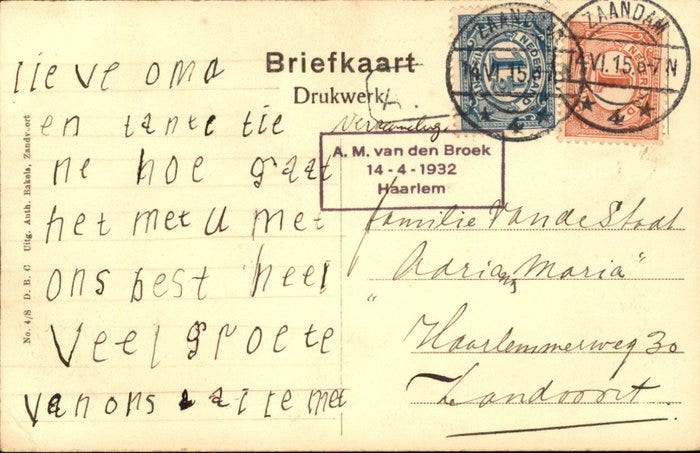 Briefkaart
Drukwerk
ZAANDAM
14 VI. 15. 6-7 N
4
NEDERLAND
ZAANDAM
14 VI. 15. 6-7 N
4
NEDERLAND
A. M. van den Broek
14 - 4 - 1932
Haarlem
lieve oma
en tante tie
ne hoe gaat
het met u met
ons best heel
veel groete
van ons met
familie van de Staat
"Adrianus Maria"
Haarlemmerweg 30
Zandvoort.
No. 4/8 D. B. C Uitg. Anth. Bakels, Zandvoort